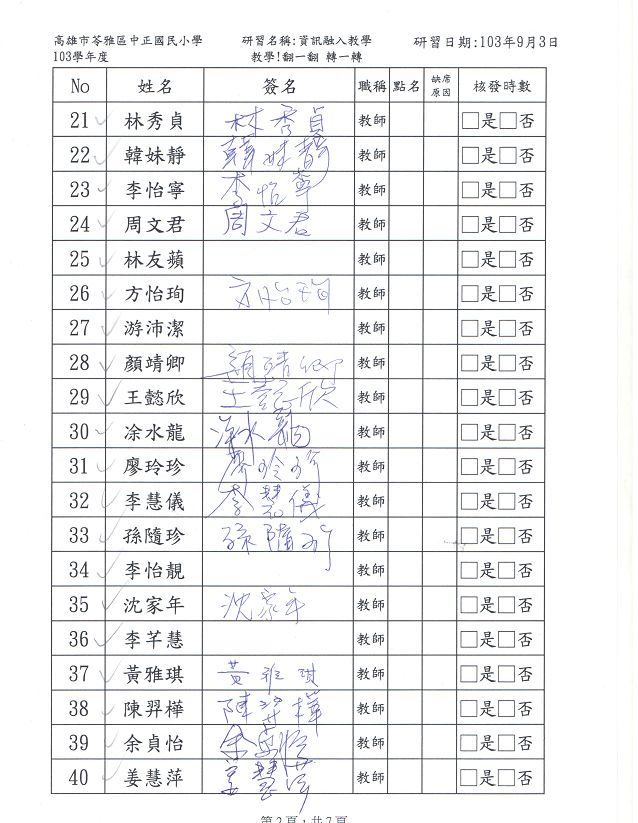 高雄市苓雅區中正國民小學 研習名稱:資訊融入教學 研習日期:103年9月3日
103學年度 教學!翻一翻 轉一轉
No 姓名 簽名 職稱 點名 缺席原因 核發時數
21 林秀貞 林秀貞 教師 □是□否
22 韓妹靜 韓妹靜 教師 □是□否
23 李怡寧 李怡寧 教師 □是□否
24 周文君 周文君 教師 □是□否
25 林友蘋 教師 □是□否
26 方怡珣 方怡珣 教師 □是□否
27 游沛潔 教師 □是□否
28 顏靖卿 顏靖卿 教師 □是□否
29 王懿欣 王懿欣 教師 □是□否
30 涂水龍 涂水龍 教師 □是□否
31 廖玲珍 廖玲珍 教師 □是□否
32 李慧儀 李慧儀 教師 □是□否
33 孫隨珍 孫隨珍 教師 □是□否
34 李怡靚 教師 □是□否
35 沈家年 沈家年 教師 □是□否
36 李芊慧 教師 □是□否
37 黃雅琪 黃雅琪 教師 □是□否
38 陳羿樺 陳羿樺 教師 □是□否
39 余貞怡 余貞怡 教師 □是□否
40 姜慧萍 姜慧萍 教師 □是□否
第2頁，共7頁